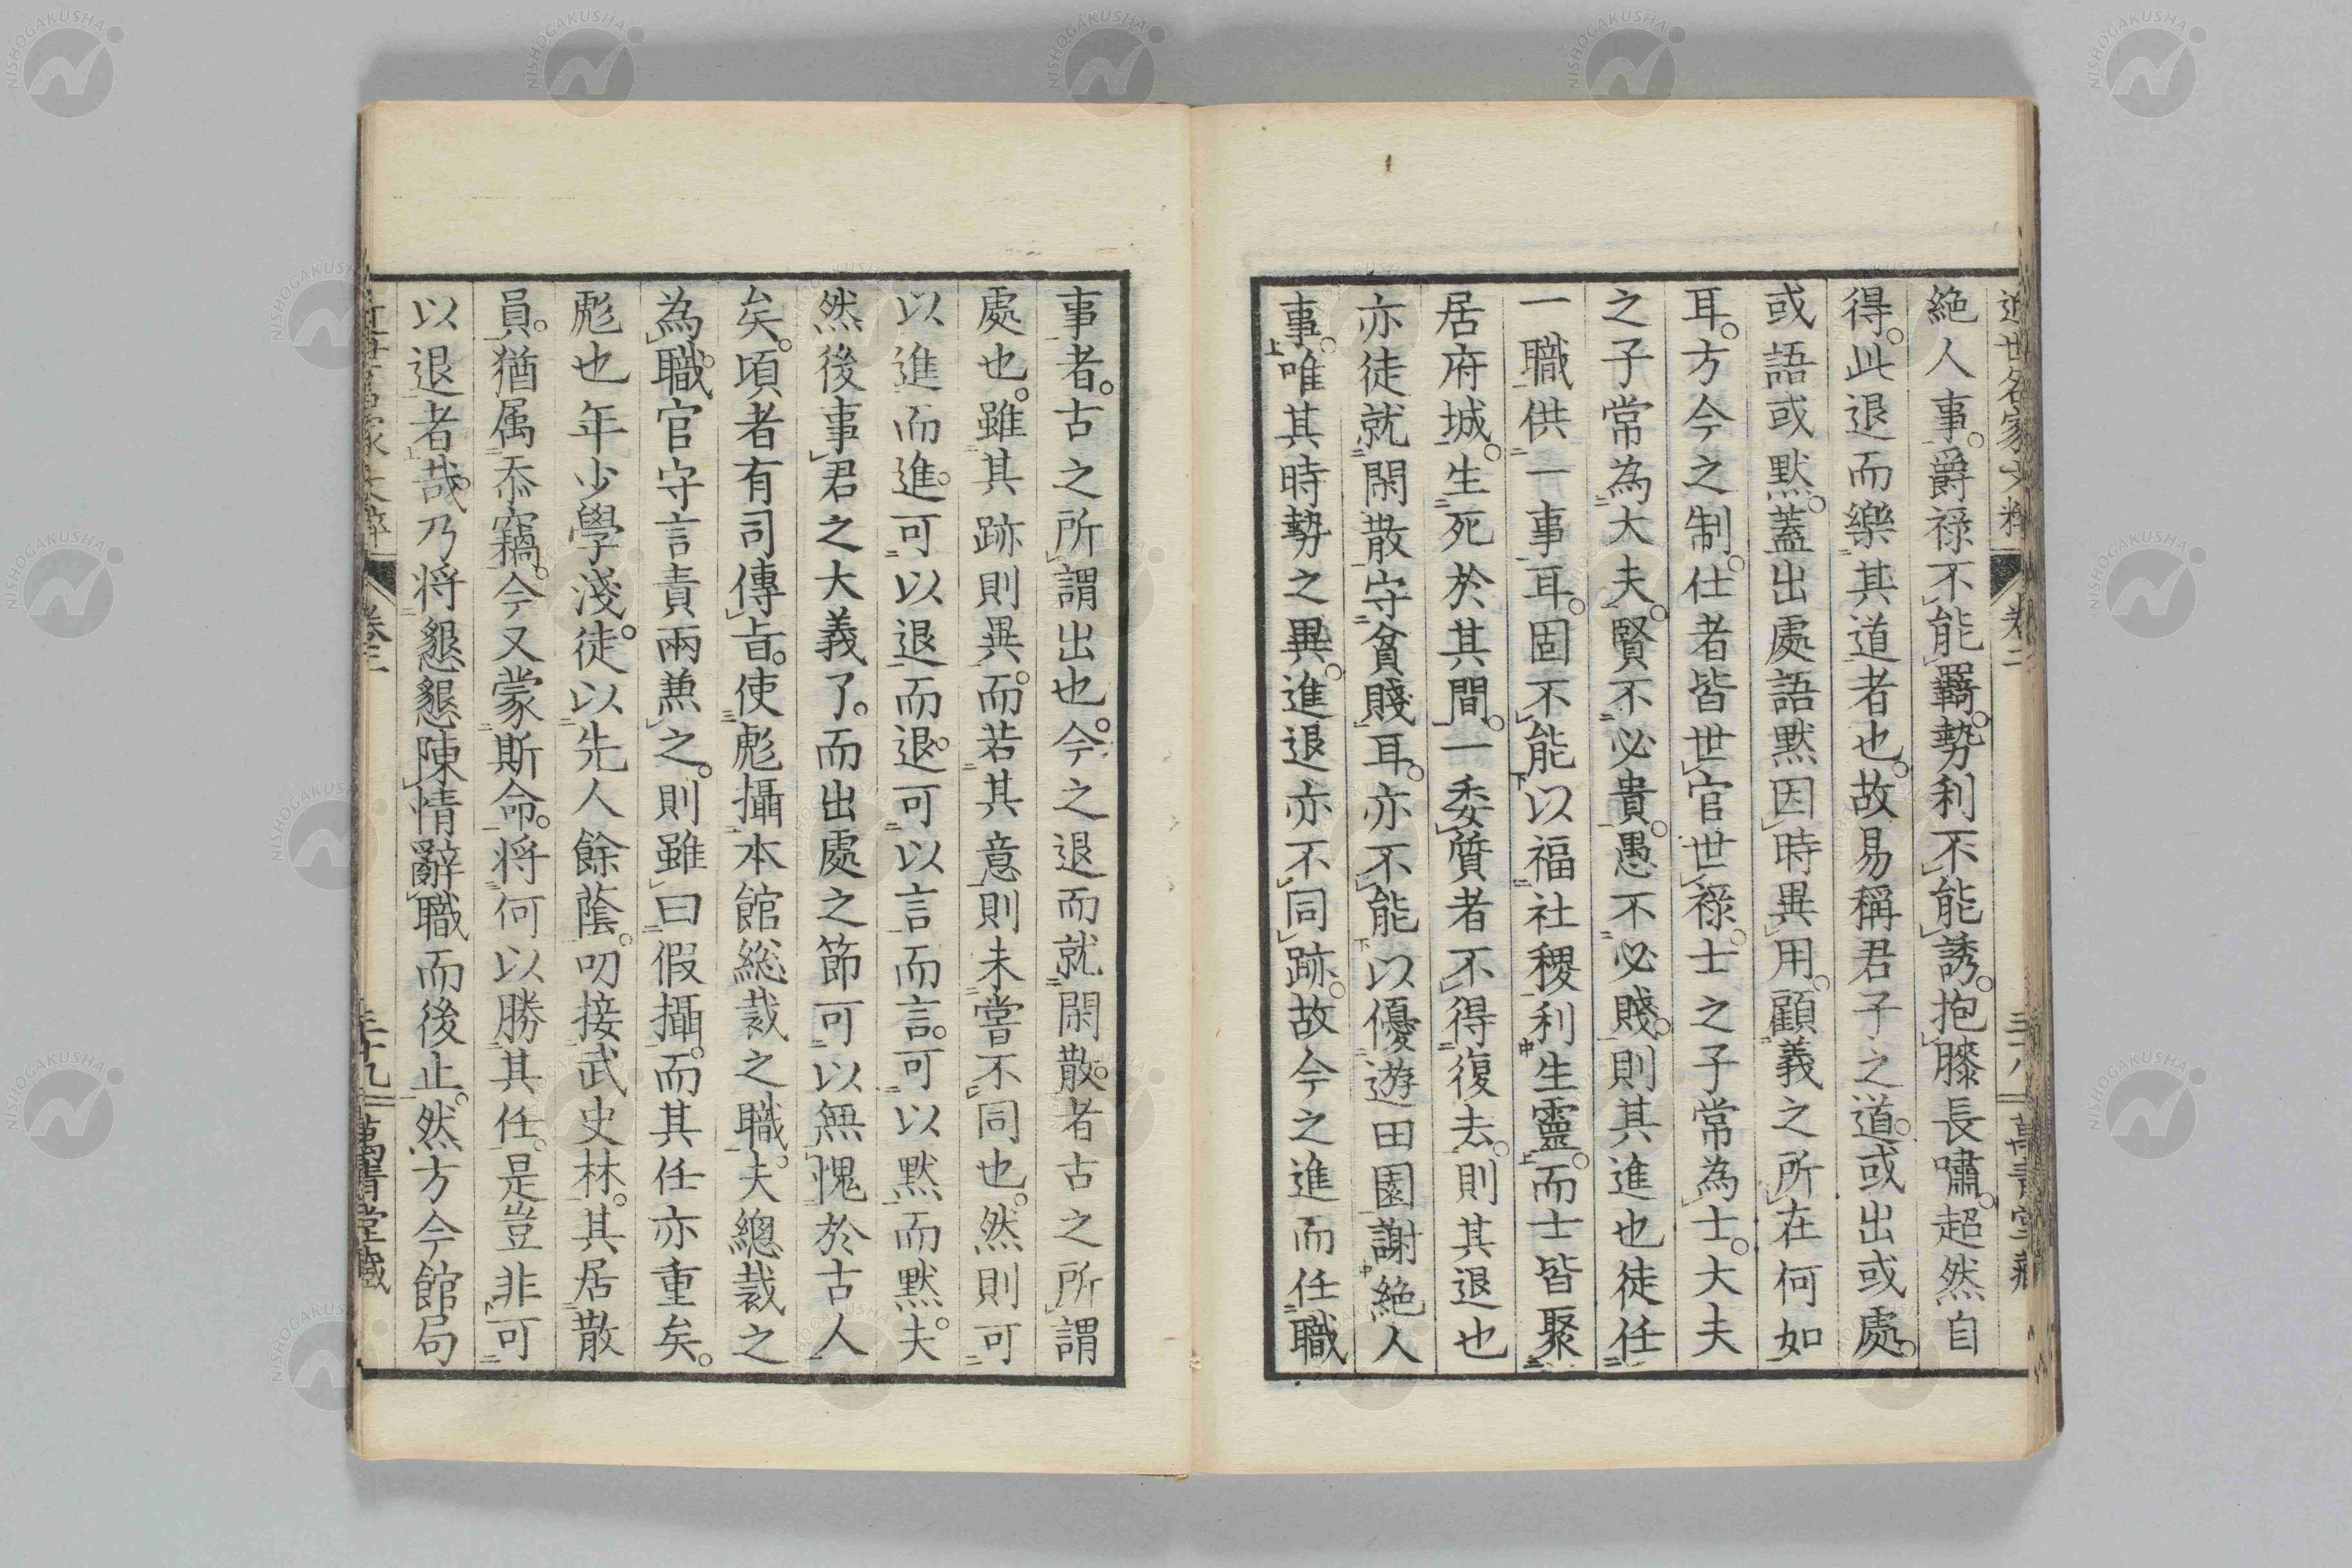 絶人事。爵祿不能羈。勢利不能誘。抱膝長嘯。超然自
得。此退而樂其道者也。故易稱君子之道。或出或處。
或語或默。蓋出處語默因時異用。顧義之所在何如
耳。方今之制。仕者皆世官世祿。士之子常為士。大夫
之子常為大夫。賢不必貴。愚不必賤。則其進也徒任
一職供一事耳。固不能以福社稷利生靈。而士皆聚
居府城。生死於其間。一委質者不得復去。則其退也
亦徒就閑散守貧賤耳。亦不能以優遊田園謝絶人
事。唯其時勢之異。進退亦不同跡。故今之進而任職
事者。古之所謂出也。今之退而就閑散。者古之所謂
處也。雖其跡則異。而若其意則未嘗不同也。然則可
以進而進。可以退而退。可以言而言。可以默而默。夫
然後事君之大義了。而出處之節可以無愧於古人
矣。頃者有司傳旨。使彪攝本館総裁之職。夫總裁之
為職。官守言責兩兼之。則雖曰假攝。而其任亦重矣。
彪也年少學淺。徒以先人餘蔭。叨接武史林。其居散
員。猶属忝竊。今又蒙斯命。将何以勝其任。是豈非可
以退者哉。乃将懇懇陳情辭職而後止。然方今館局
卷三
三十九
萬青堂藏